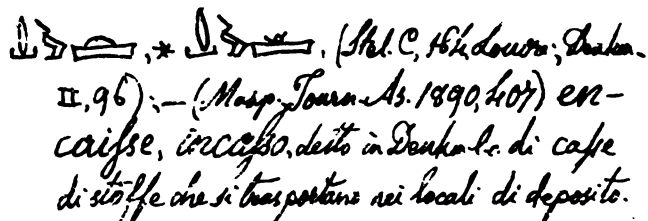 , * . (Stel. C, 164, Louvre; Denkm.
II, 96); — (Masp. Journ. As. 1890, 407) en-
caisse, incasso, detto in Denkm. l. c. di casse
di stoffe che si trasportano nei locali di deposito.